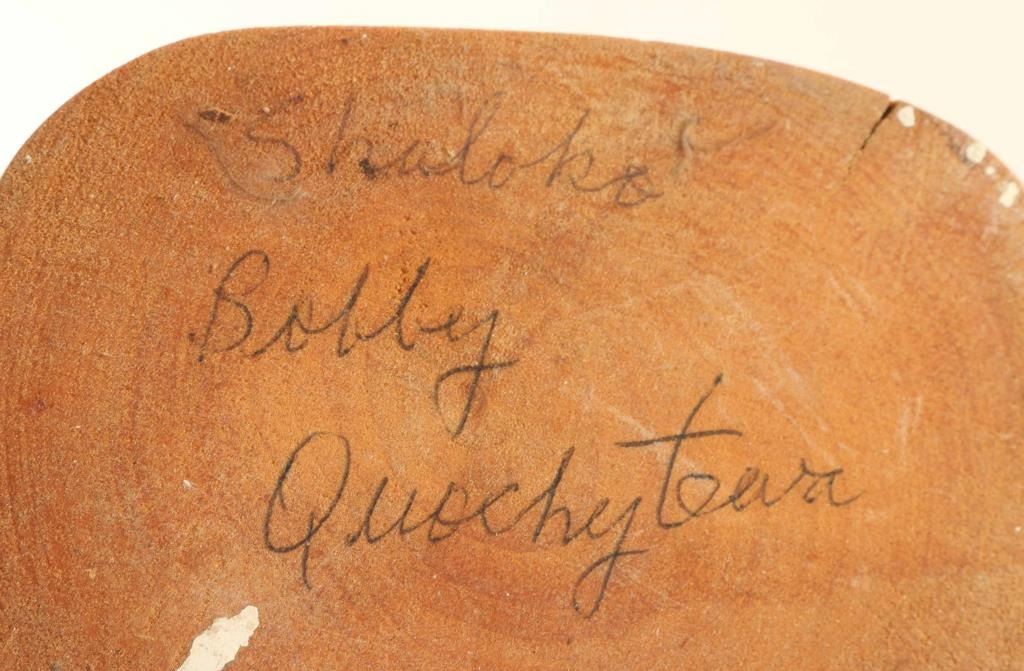 "Shaloko"
Bobby
Quochytewa